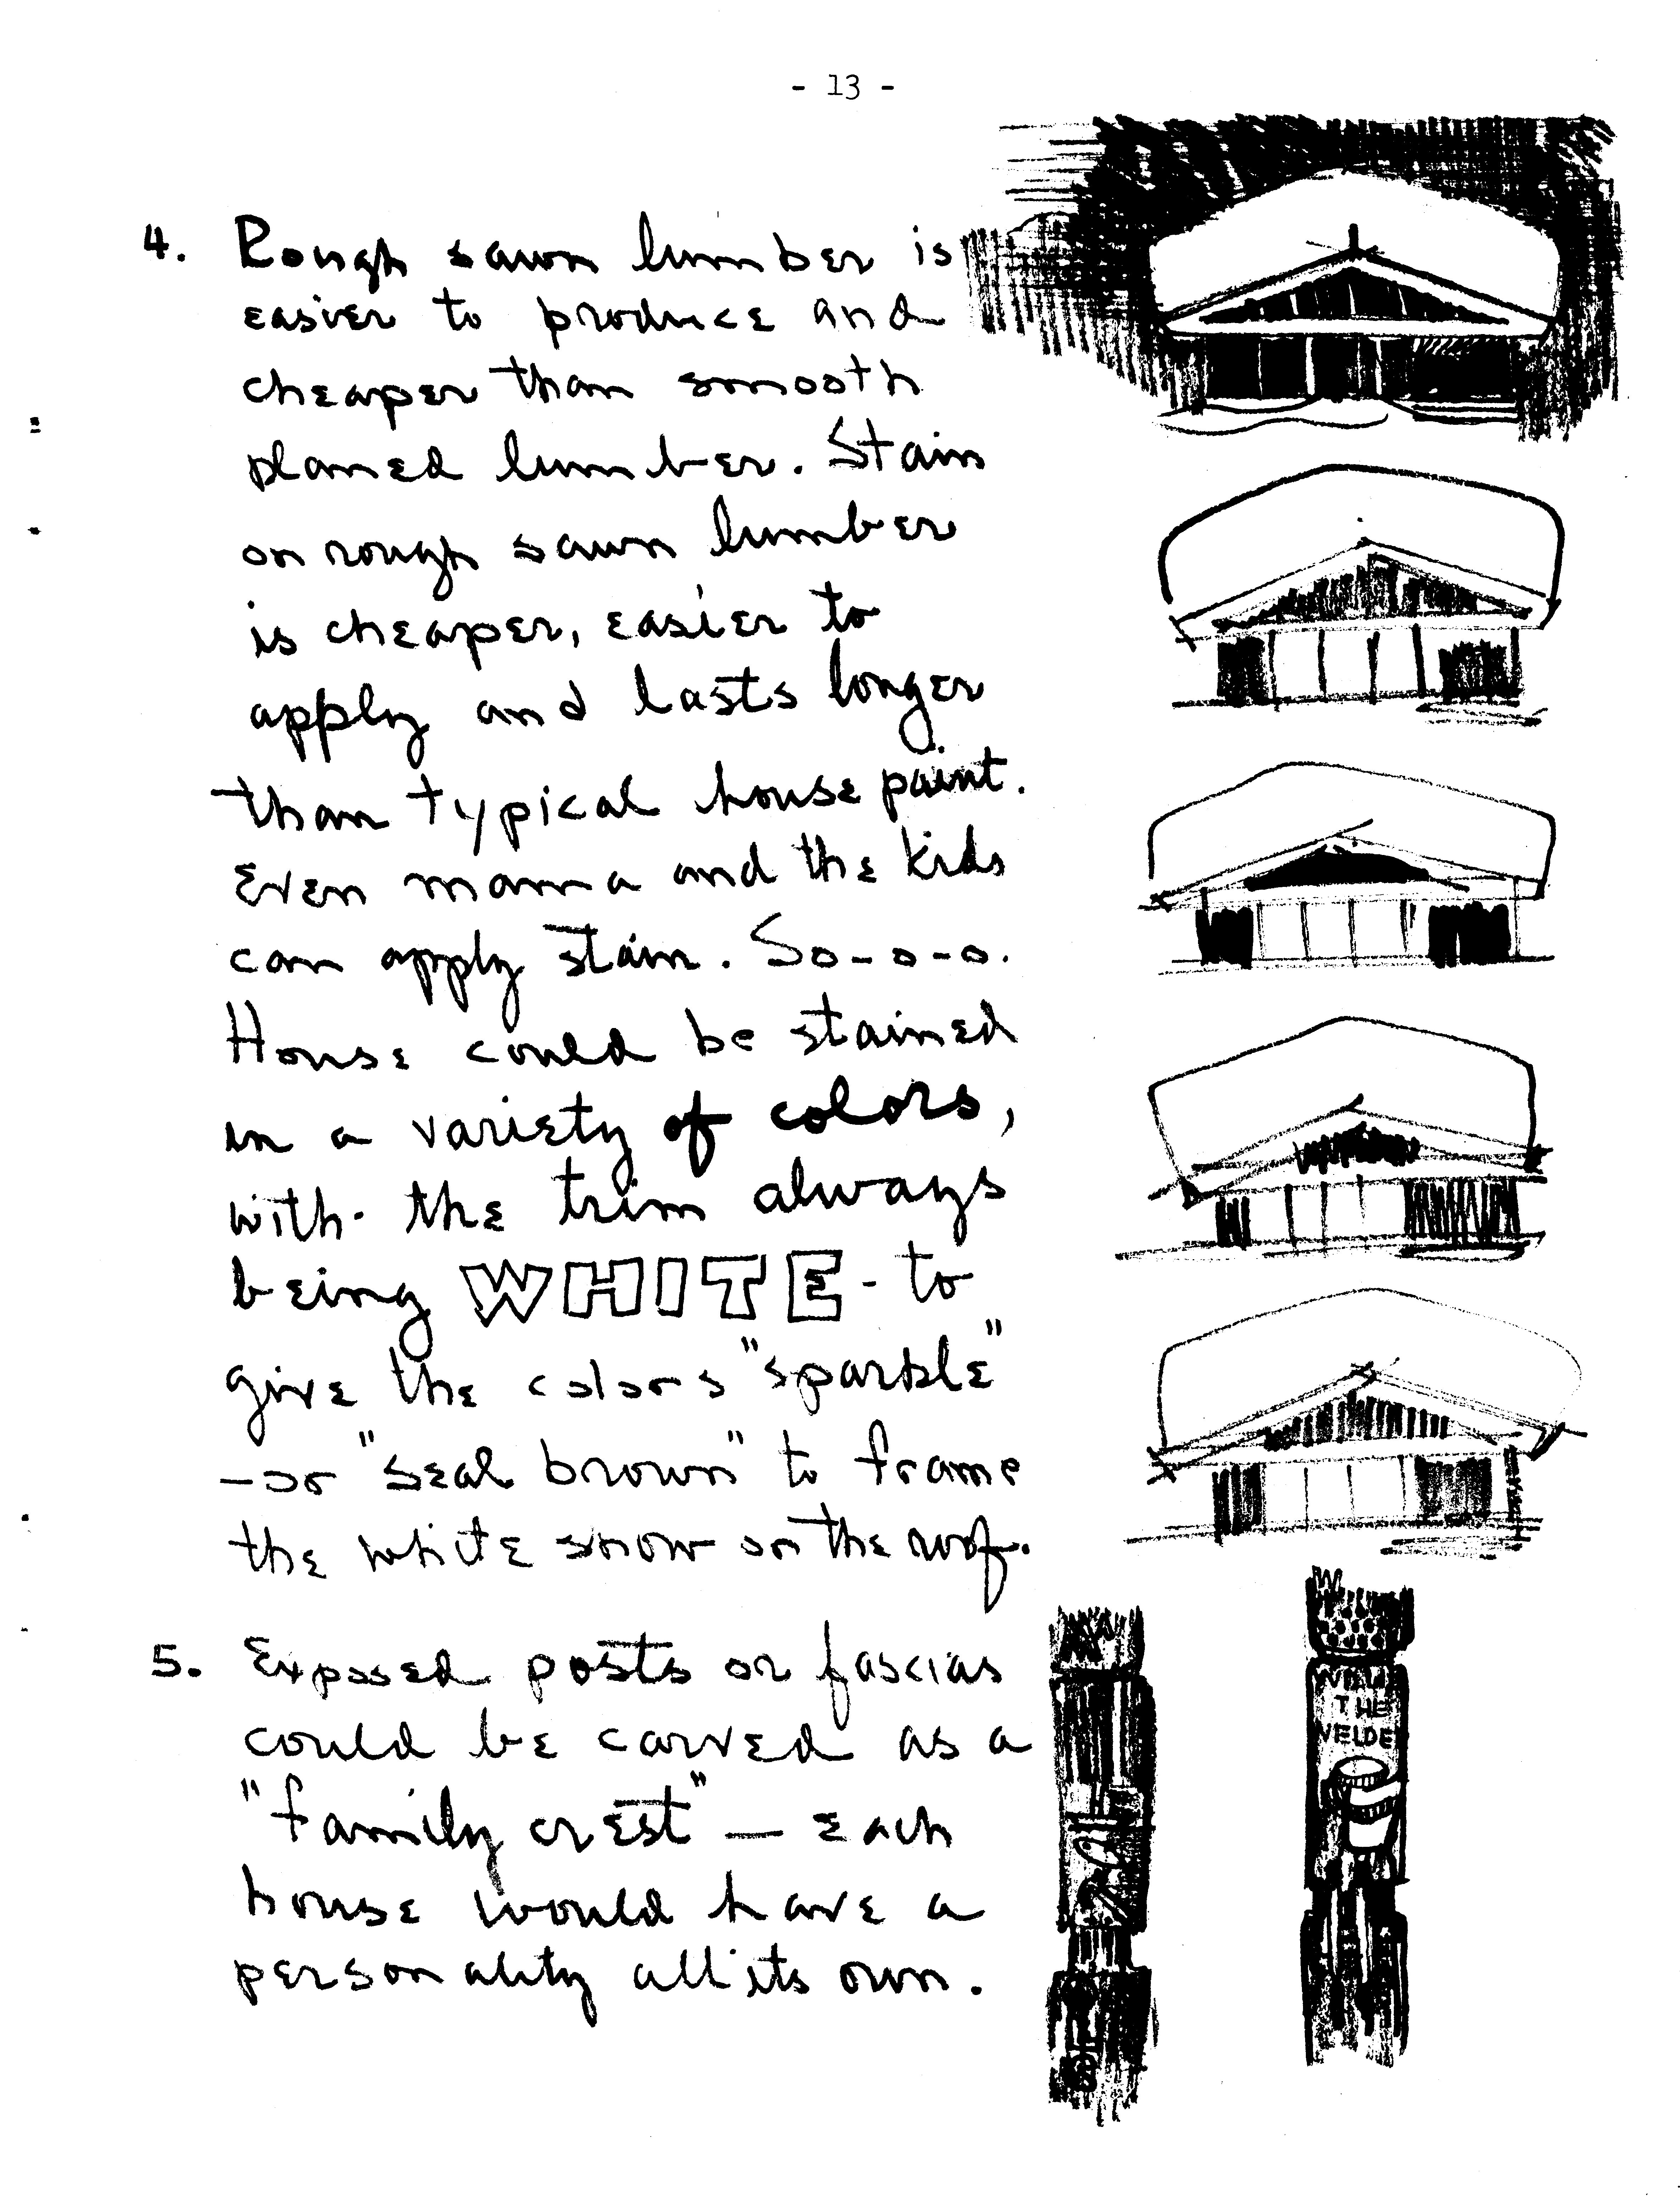 - 13 -
4. Rough sawn lumber is
easier to produce and
cheaper than smooth
planed lumber. Stain
on rough sawn lumber
is cheaper, easier to
apply and lasts longer
than typical house paint.
Even mama and the kids
can apply stain. So-o-o.
House could be stained
in a variety of colors,
with the trim always
being WHITE - to
give the colors "sparkle"
- or "seal brown" to frame
the white snow on the roof.
5. Exposed posts or fascias
could be carved as a
"family crest" — each
house would have a
personality all its own.
THE